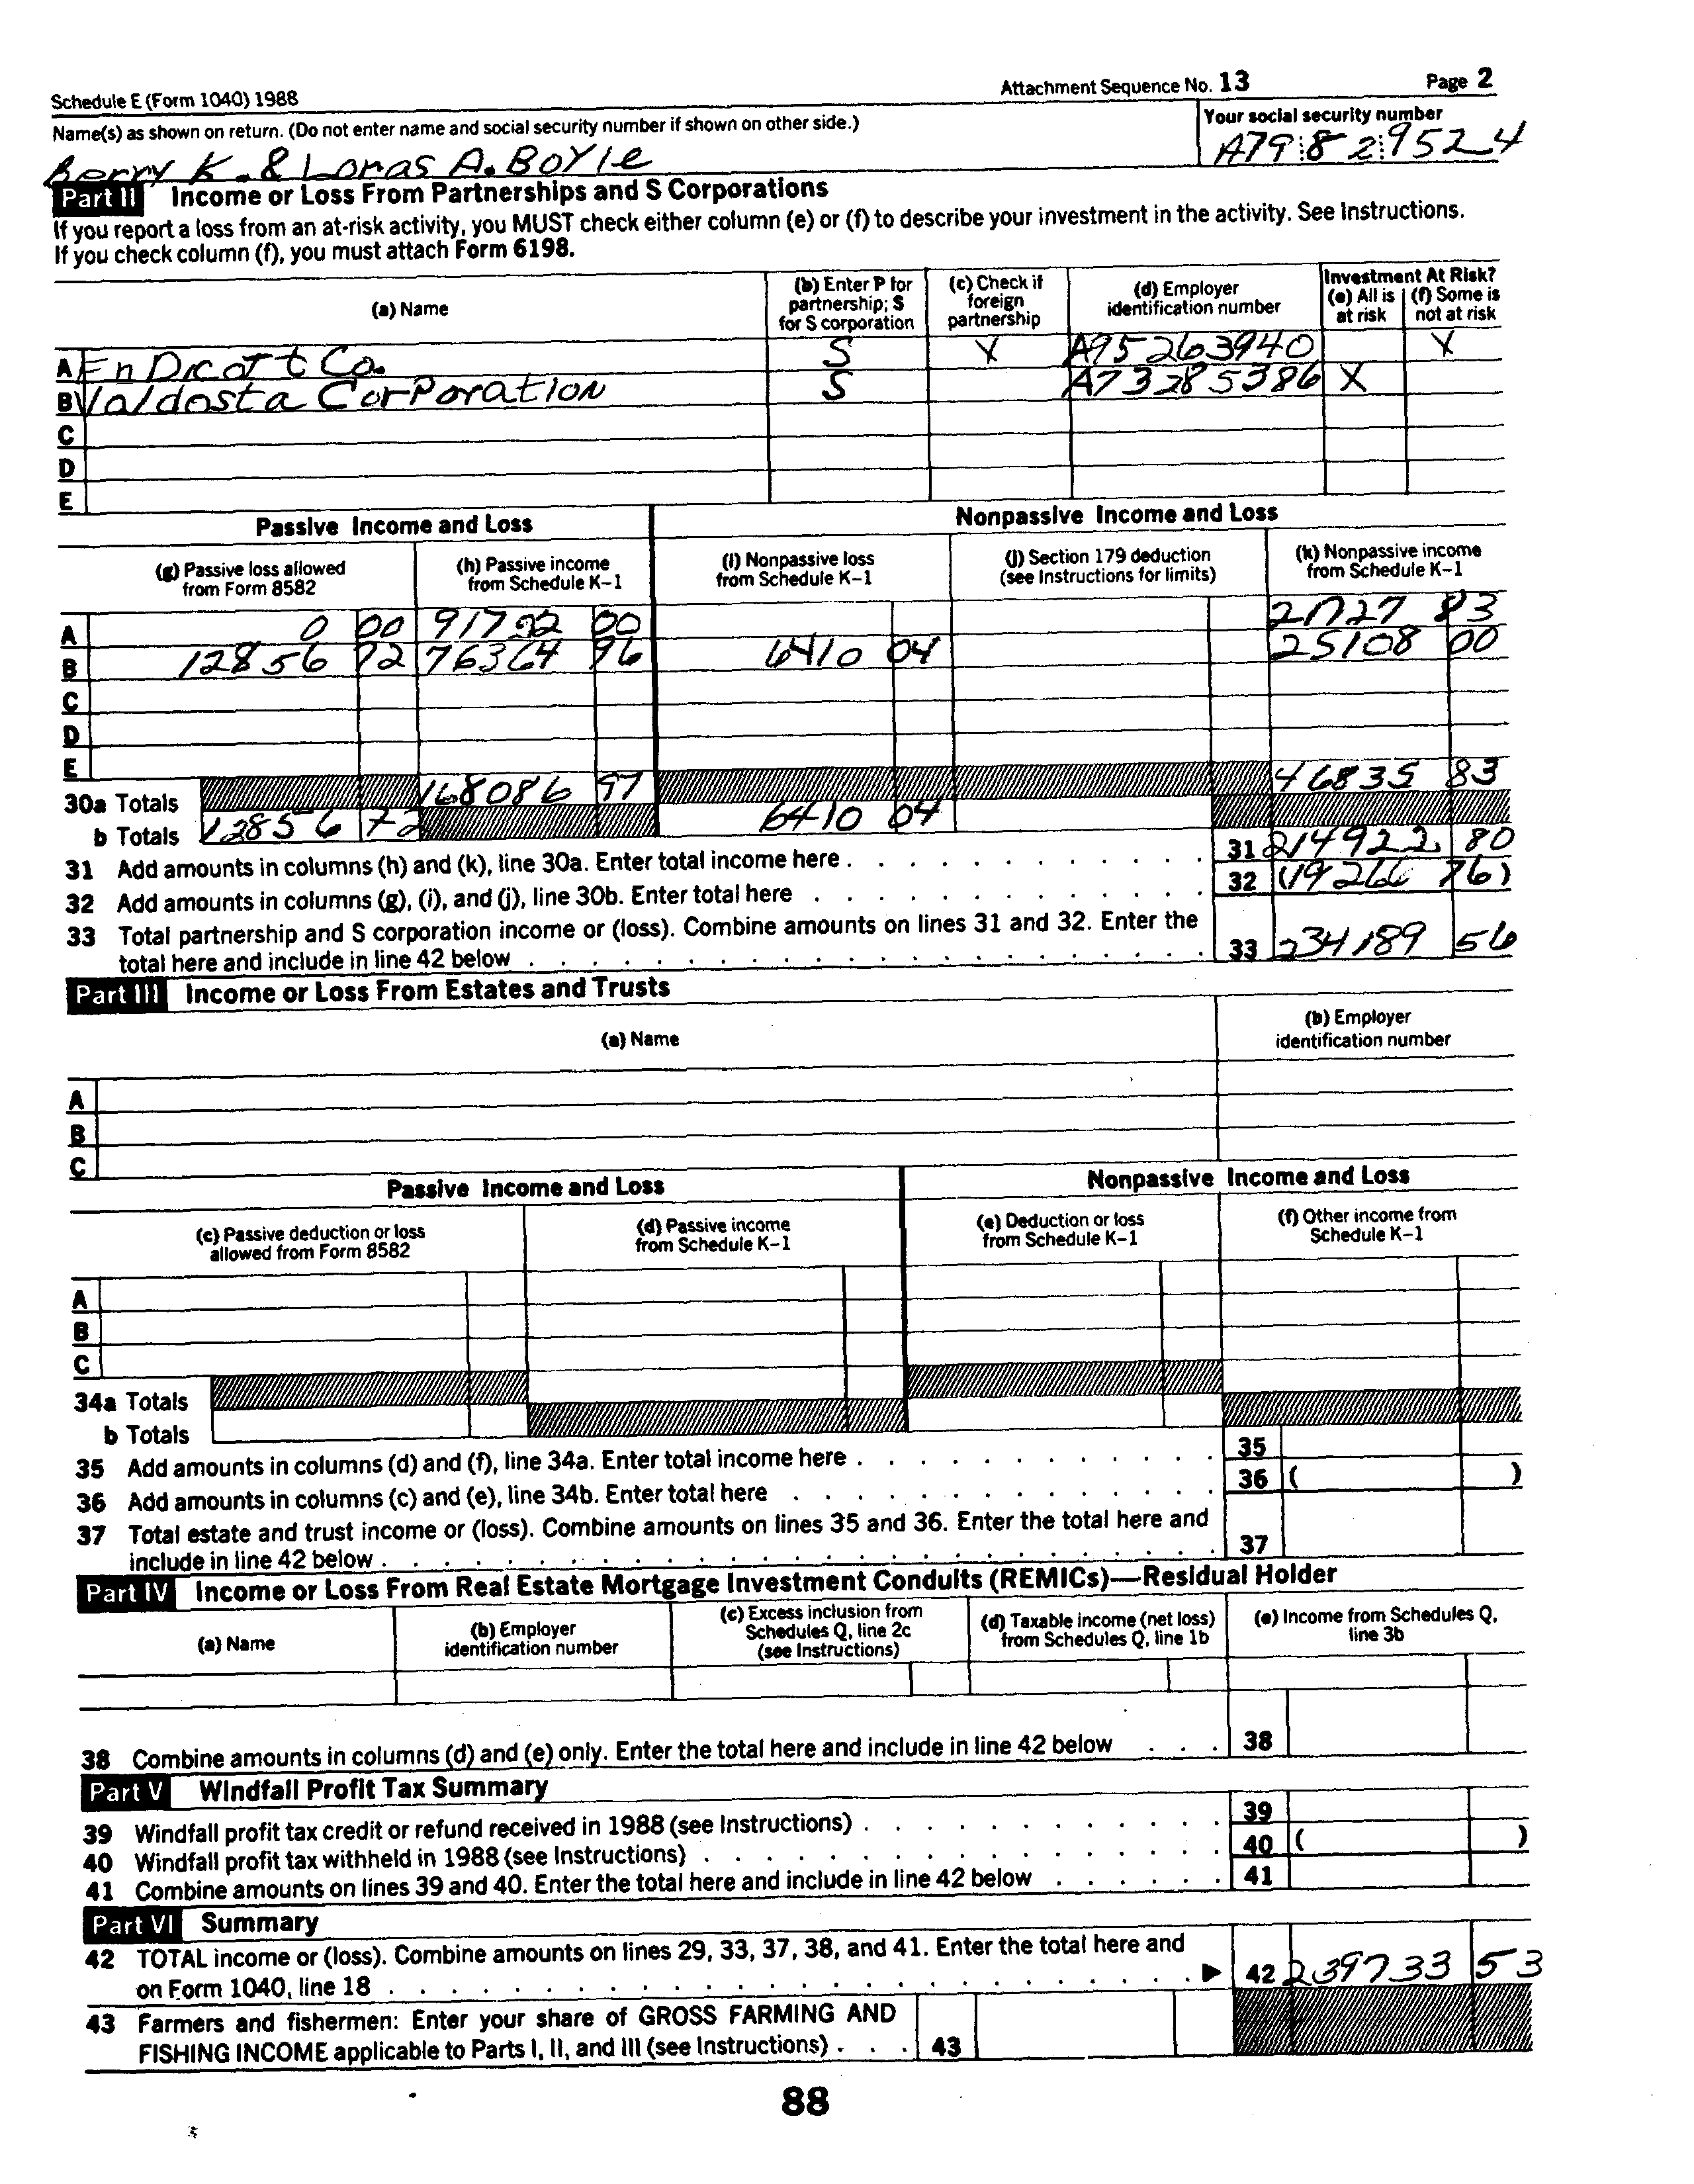 Schedule E (Form 1040) 1988 Attachment Sequence No. 13 Page 2
Name(s) as shown on return. (Do not enter name and social security number if shown on other side.) Your social security number
Berry K. & Loras A. Boyle A79 82 9524
Part II Income or Loss From Partnerships and S Corporations
If you report a loss from an at-risk activity, you MUST check either column (e) or (f) to describe your investment in the activity. See Instructions.
If you check column (f), you must attach Form 6198.
(a) Name (b) Enter P for partnership; S for S corporation (c) Check if foreign partnership (d) Employer identification number Investment At Risk? (e) All is at risk (f) Some is not at risk
A EnDicott Co. S X A95263940 X
B Valdosta CorPoration S A73285386 X
C
D
E
Passive Income and Loss Nonpassive Income and Loss
(g) Passive loss allowed from Form 8582 (h) Passive income from Schedule K-1 (i) Nonpassive loss from Schedule K-1 (j) Section 179 deduction (see Instructions for limits) (k) Nonpassive income from Schedule K-1
A 0 00 91722 00 21727 83
B 12856 72 76364 96 6410 04 25108 00
C
D
E
30a Totals 168086 97 46835 83
b Totals 12856 72 6410 04
31 Add amounts in columns (h) and (k), line 30a. Enter total income here . 31 214922 80
32 Add amounts in columns (g), (i), and (j), line 30b. Enter total here . 32 (19266 76)
33 Total partnership and S corporation income or (loss). Combine amounts on lines 31 and 32. Enter the
total here and include in line 42 below . 33 234189 56
Part III Income or Loss From Estates and Trusts
(a) Name (b) Employer identification number
A
B
C
Passive Income and Loss Nonpassive Income and Loss
(c) Passive deduction or loss allowed from Form 8582 (d) Passive income from Schedule K-1 (e) Deduction or loss from Schedule K-1 (f) Other income from Schedule K-1
A
B
C
34a Totals
b Totals
35 Add amounts in columns (d) and (f), line 34a. Enter total income here . 35
36 Add amounts in columns (c) and (e), line 34b. Enter total here . 36 ( )
37 Total estate and trust income or (loss). Combine amounts on lines 35 and 36. Enter the total here and
include in line 42 below . 37
Part IV Income or Loss From Real Estate Mortgage Investment Conduits (REMICs)—Residual Holder
(a) Name (b) Employer identification number (c) Excess inclusion from Schedules Q, line 2c (see Instructions) (d) Taxable income (net loss) from Schedules Q, line 1b (e) Income from Schedules Q, line 3b
38 Combine amounts in columns (d) and (e) only. Enter the total here and include in line 42 below . 38
Part V Windfall Profit Tax Summary
39 Windfall profit tax credit or refund received in 1988 (see Instructions) . 39
40 Windfall profit tax withheld in 1988 (see Instructions) . 40 ( )
41 Combine amounts on lines 39 and 40. Enter the total here and include in line 42 below . 41
Part VI Summary
42 TOTAL income or (loss). Combine amounts on lines 29, 33, 37, 38, and 41. Enter the total here and
on Form 1040, line 18 . ▶ 42 239733 53
43 Farmers and fishermen: Enter your share of GROSS FARMING AND
FISHING INCOME applicable to Parts I, II, and III (see Instructions) . 43
88